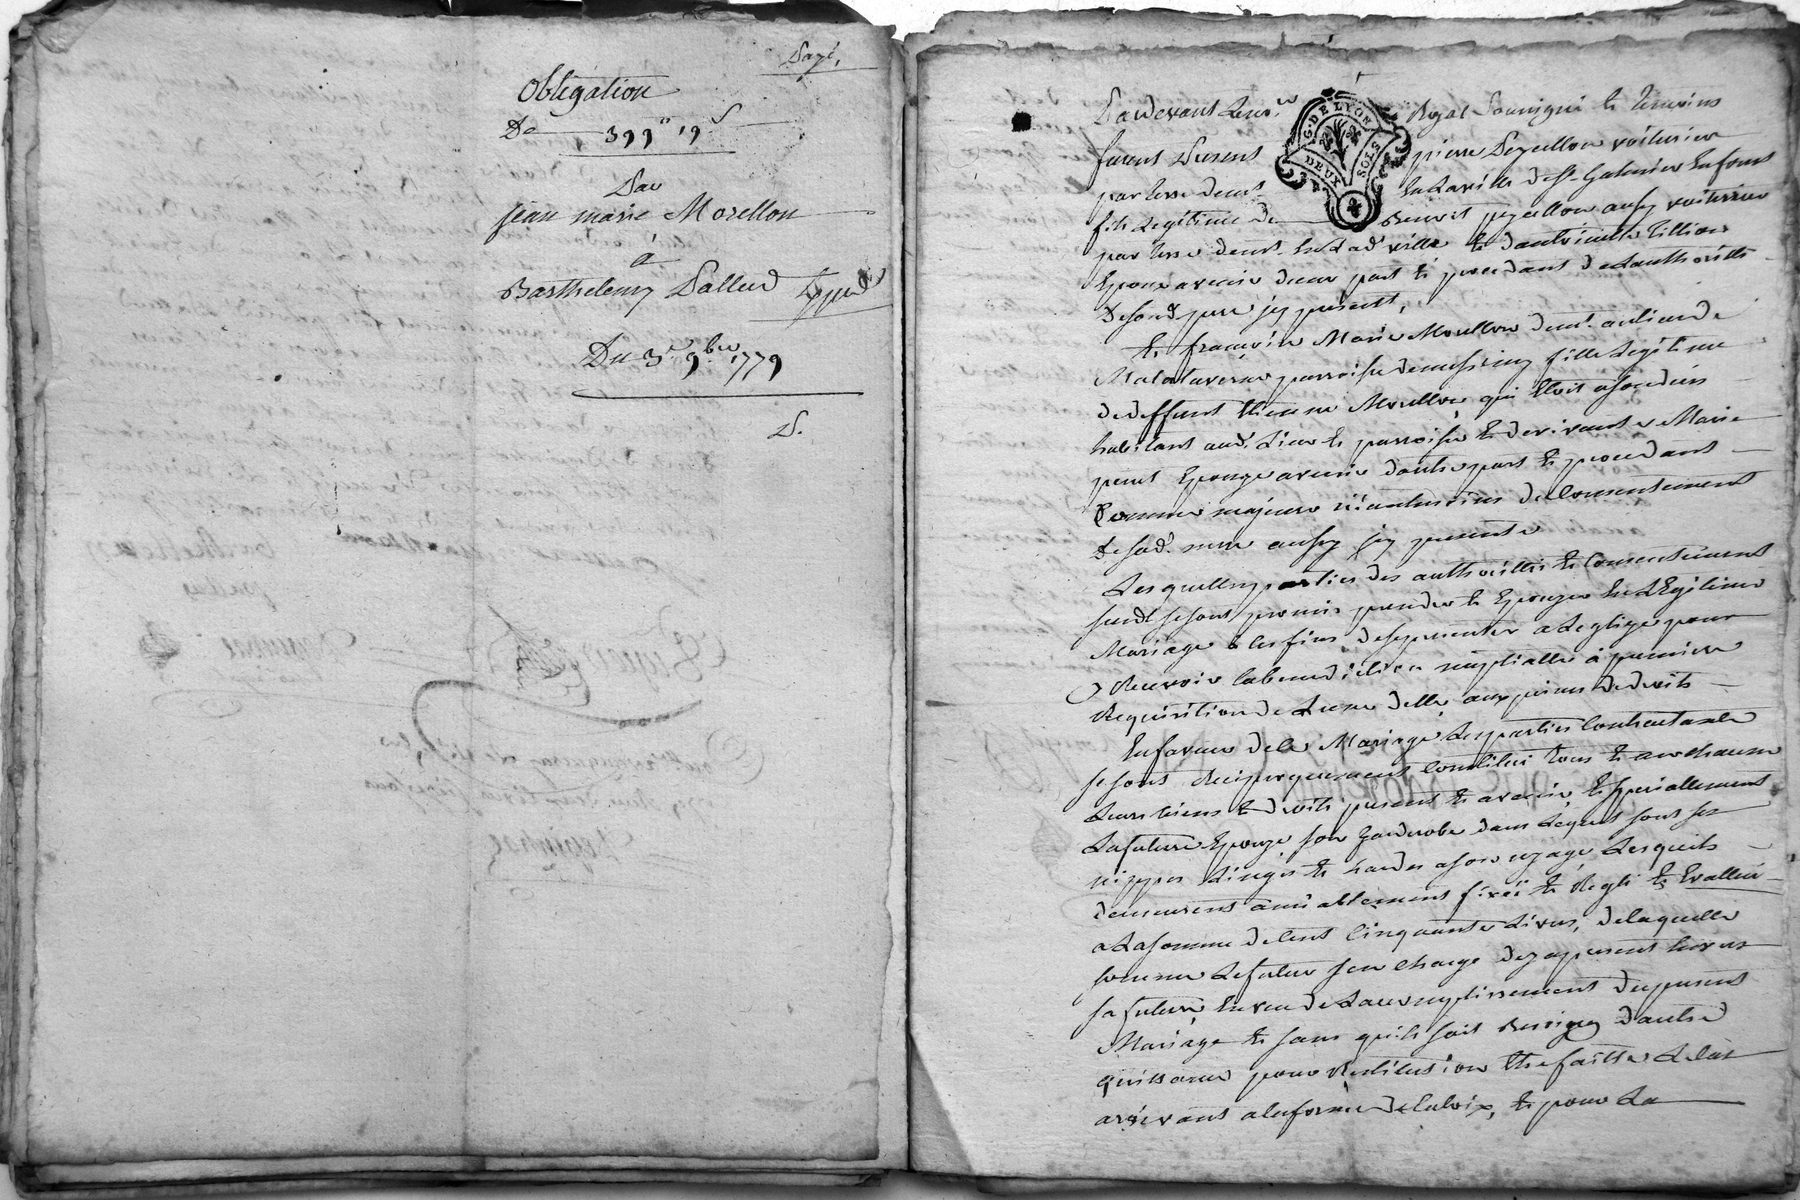 Payé,
Obligation
De 399ᴸᵗ 19ˢ
Par
jean marie Morellon
à
Barthelemy Pallud
Du 3ᵉ 9bre 1779
P.
Pardevant Le nore Royal Soussigné Et temoins
G. DE LYON
DEUX SOLS
furent presents pierre voiturier
par terre demt En La ville de St Galmier En forest
fils Legitime de Benoit aussy voiturier
par terre demt En Lade ville Et d'antoinette Tillion
Epoux avenir d'une part Et procedant de Lauthorité
De sond. pere jcy present,
Et françoise Marie Morellon demt au lieu de
Malataverne parroisse de fille Legitime
de deffunt Etienne Morellon, qui Etoit a son deces
habitant aud. Lieu Et parroisse Et de vivante Marie
Epouze avenir d'autre part Et procedant
Comme majeure neanmoins du Consentement
De sad. mere aussy jcy presente
Lesquelles parties des authorités Et Consentement
susdt se sont promis prendre Et Epouzer En Legitime
Mariage Et a ces fins de se presenter a Leglize pour
Recevoir la benediction nuptialle à premiere
Requisition de Lune delles aux peines de droits
En faveur de ce Mariage Les parties Contractantes
se sont Reciproquement Constitué tous Et un chacun
Leurs biens Et droits presents Et avenir, Et specialement
La future Epouze son garderobe dans Lequel sont ses
nippes Linges Et hardes a son uzage, Lesquels
demeurent amiablement fixés Et Reglé Et Evallué
a La somme de Cent Cinquante Livres, de laquelle
somme Le futur sen charge dezapresent Envers
sa future, En vue de Laccomplissement du present
Mariage Et sans quil soit Besoing d'autre
quittance pour Restitution Etre faitte Le Cas
arrivant a la forme de la loix, Et pour La